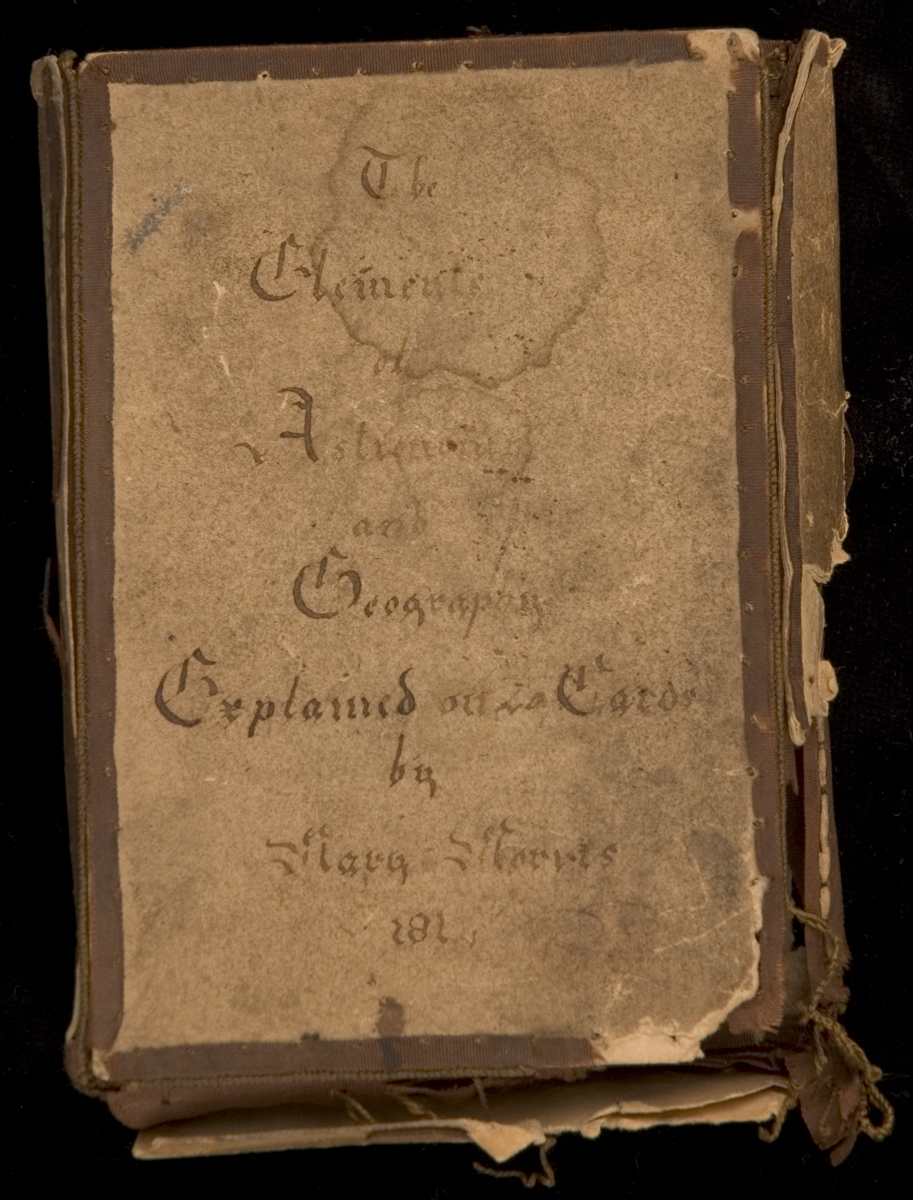 The
Elements
of
Astronomy
and
Geography
Explained on Cards
by
Mary Morris